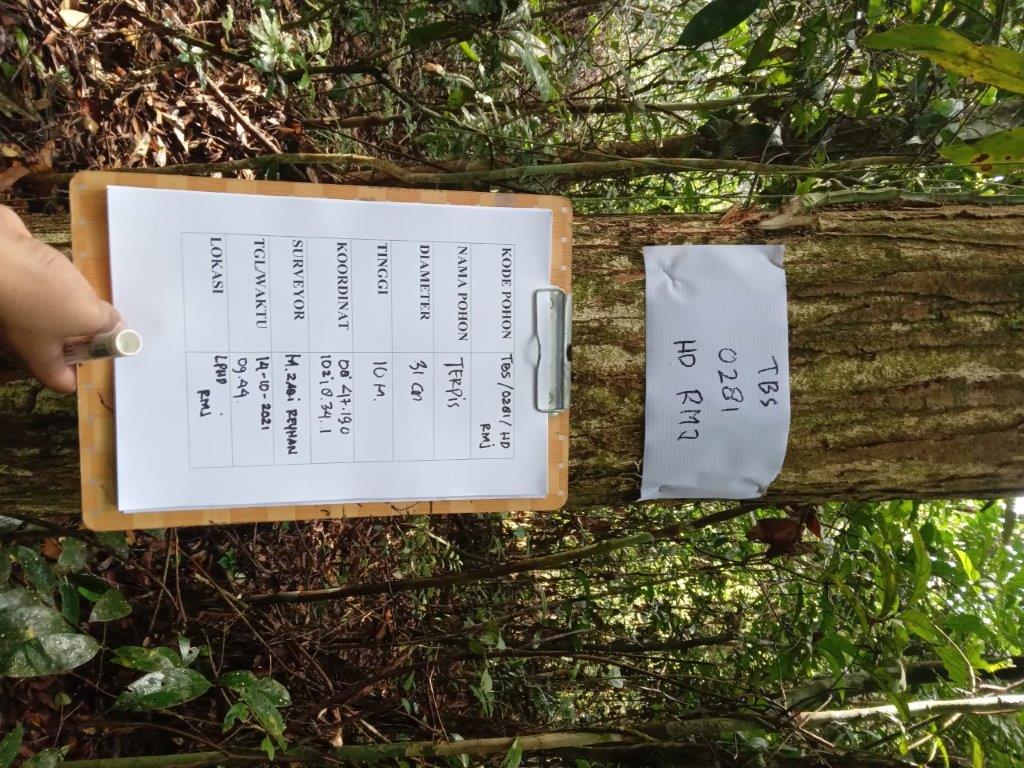 TBS
0281
HD RMJ
KODE POHON TBS/0281/HD
RMJ
NAMA POHON TERPIS
DIAMETER 31 cm
TINGGI 10 M.
KOORDINAT 00 47.190
102,0.34.1
SURVEYOR M. ZAKI REYHAN
TGL/WAKTU 14-10-2021
09.44.
LOKASI LPHD
RMJ